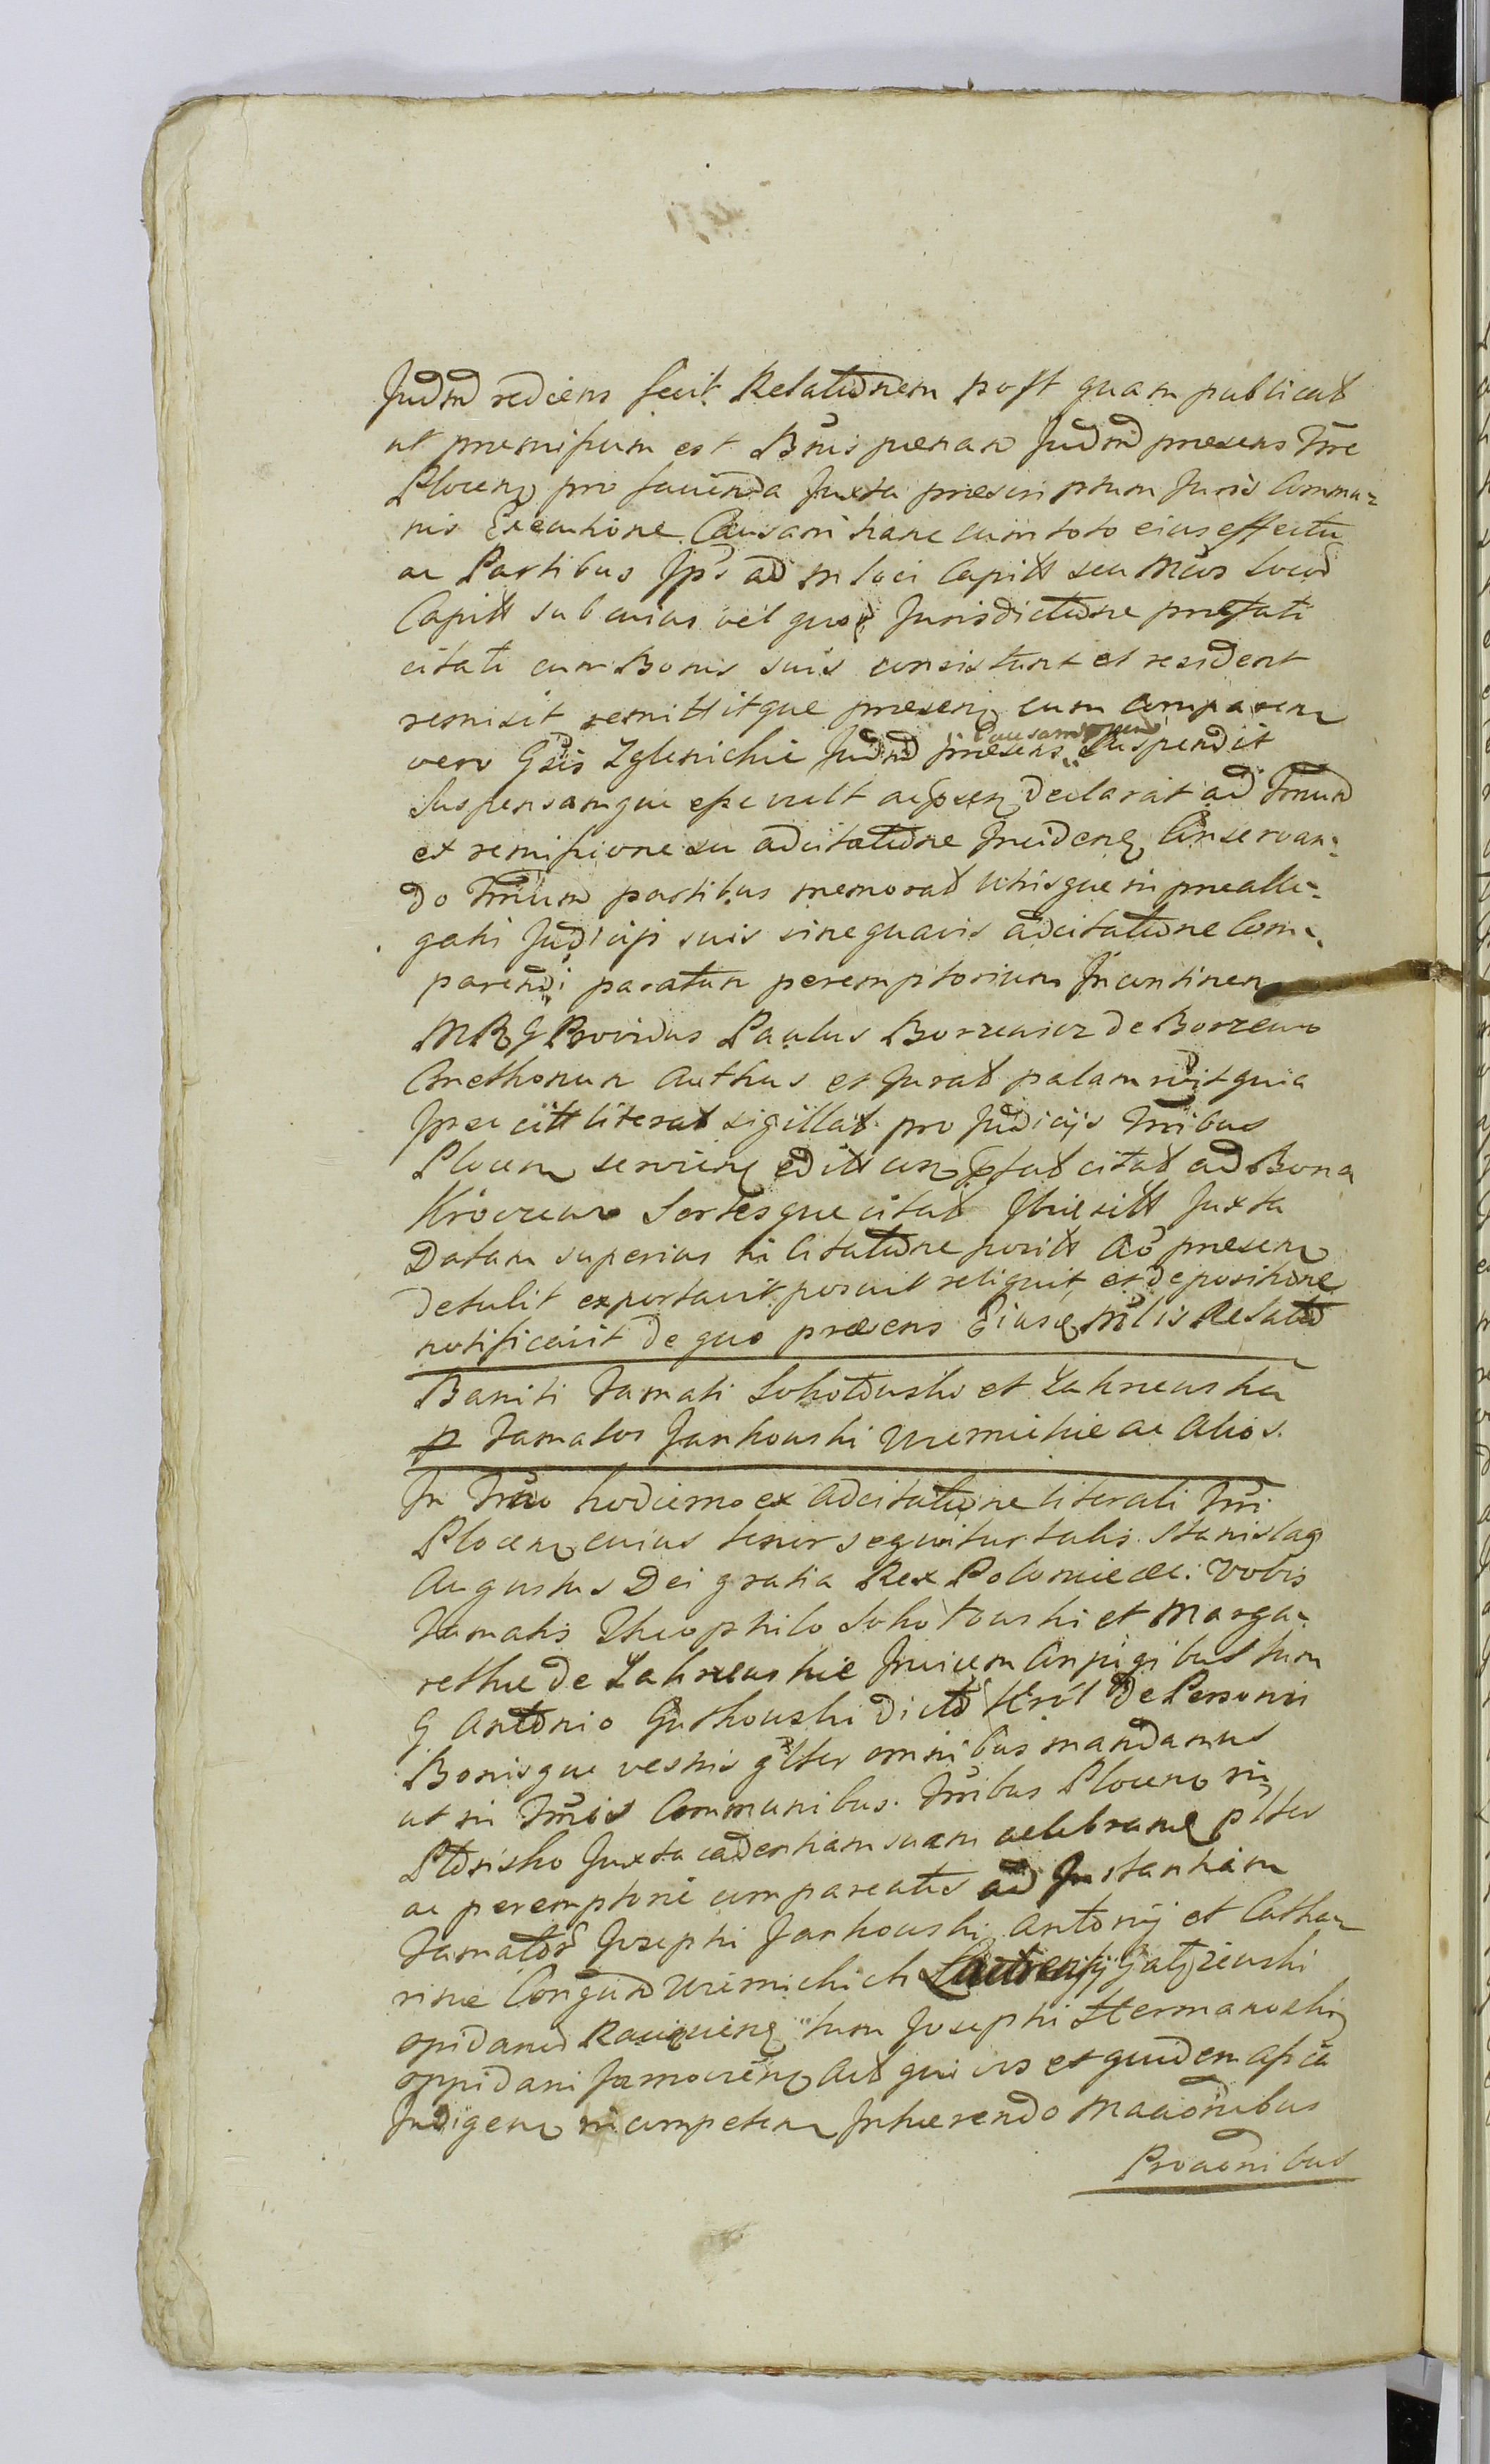 Judm rediens fecit Relationem post quam publicat
ut premissum est Bnis pœnan Judm presens Tre
Plocen pro facienda Juxta prescriptum Juris Commu-
nis Executione Causam hanc cum toto eius effectu
ac Partibus Jps ad m loci Capitt seu Locod
Capitt sub cuius vel quor Jurisdictione prefati
citati cum Bonis suis consistunt et resident
remisit remittitque presen cum comparen
vero Gsis Zglenickie Judm presens Causam Suspendit
Suspensamque esse vult ac declarat ad Tmum
ex remissione seu adcitatione Inciden Conservan-
do Tmum partibus memorat utrisque in prealle-
gati Judicij suis sine quavis adcitatione Com-
parendi paratum peremptorium Incontinen
MRG Providus Paulus Borzewicz de Borzewo
Cmethonum Authus et Jurat palam rdit quia
Jpse citt literat sigillat pro Judicijs Tribus
Plocen servien editt citat ad Bona
Kroczewo Sortesque citat Ibie sitt Juxta
Datam superius in Citatione positt Ao presen
detulit exportavit posuit reliquit, et depositione
notificavit de quo presens Eiusd Mlis Relatio
Baniti Famati Sokołowski et Zakrzewska
p Famatos Jankowski ac Alios.
In Tmo hodierno ex Adcitatione literali Tri
Plocen cuius tenor sequitur talis. Stanislag
Augustus Dei gratia Rex Poloniæ &c: Vobis
Famatis Theophilo Sokołowski et Marga-
rethæ de Zakrzewskie Invicem Conjugibus tum
G Antonio Gutkowski dicto Król de Personis
Bonisque vestris glter omnibus mandamus
ut in Tmis Communibus Tribus Plocen in
Płońsko Juxta cadentiam suam celebran plter
ac peremptorie compareatis ad Instantiam
Famator Josephi Jankowski Antonij et Catha-
rinæ Congum
opidanus Raciązien tum Josephi Hermanoski
oppidani Act qui vos et quidem
Indigen incompeten Inhærendo Macionibus
Procionibus